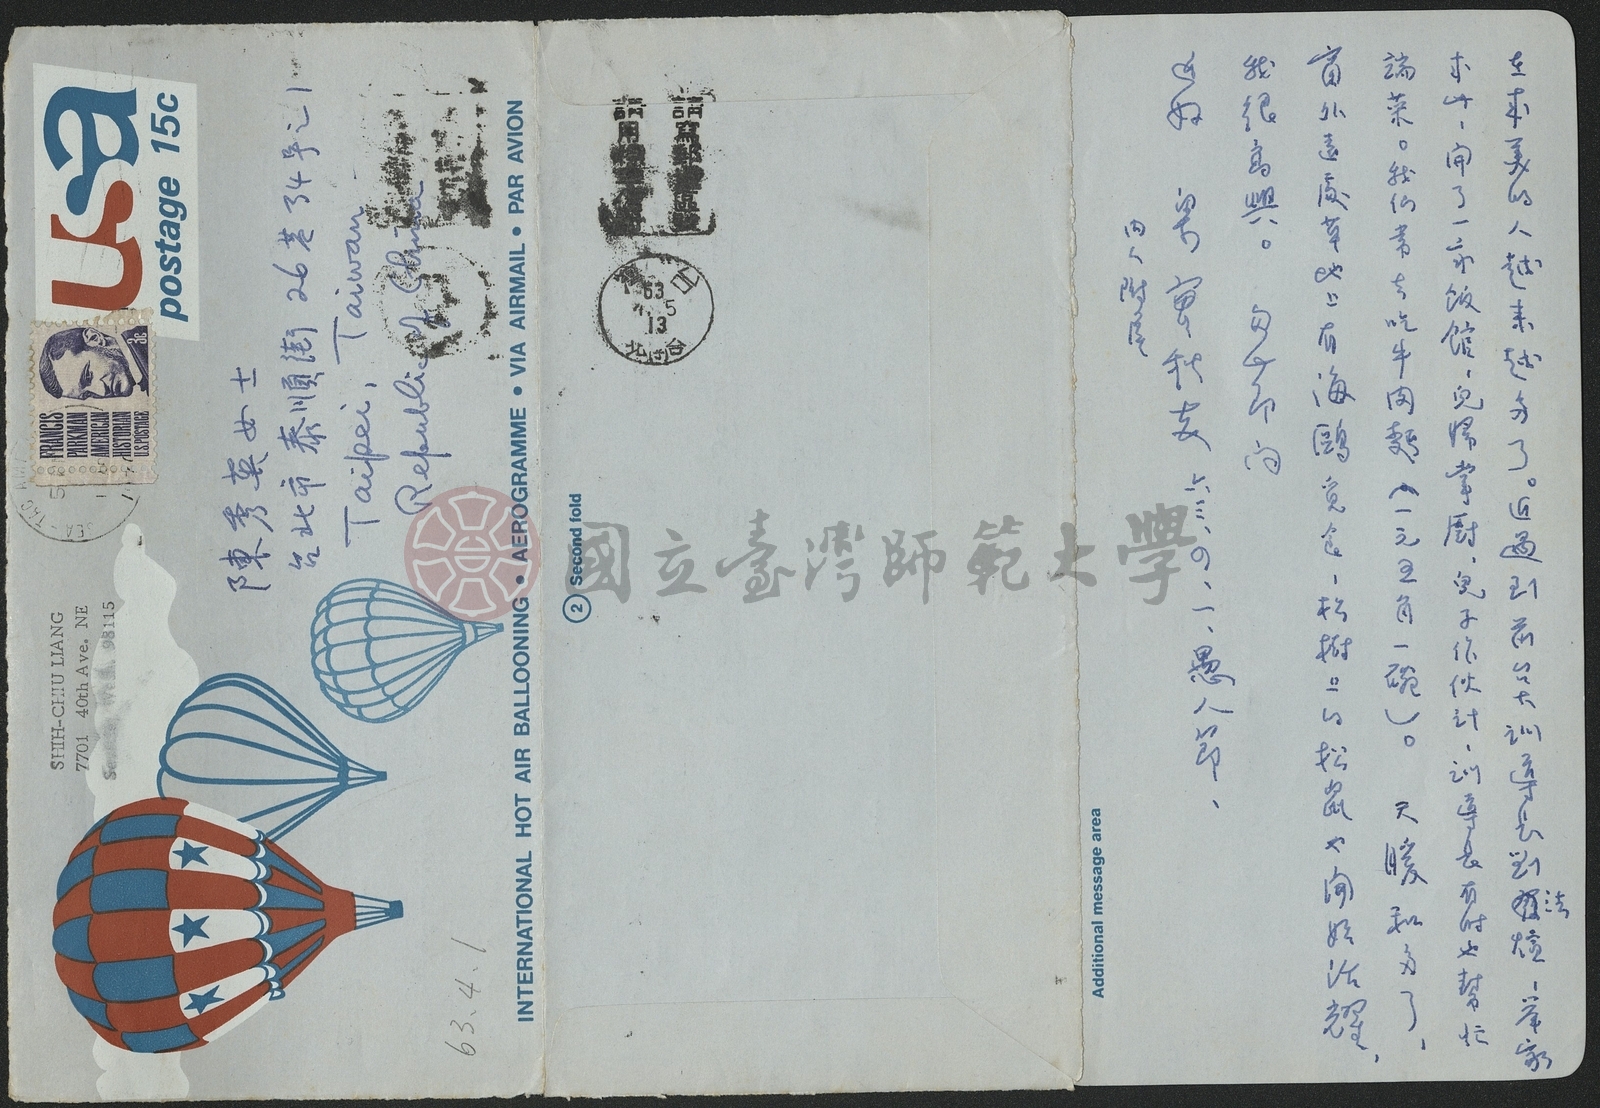 usa
postage 15c
FRANCIS
PARKMAN
AMERICAN
HISTORIAN
U.S. POSTAGE
3¢
SHIH-CHIU LIANG
7701 40th Ave. NE
98115
陳秀英女士
台北市泰順街26巷34号之1
Taipei, Taiwan
Republic of China
63.4.1
INTERNATIONAL HOT AIR BALLOONING • AEROGRAMME • VIA AIRMAIL • PAR AVION
請寫郵遞區號
請用
63
5
13
台北
② Second fold
國立臺灣師範大學
Additional message area
在來美的人越來越多了。近遇到前台大訓導長劉
法
煊,举家
來此,開了一家飯館,兒婦掌廚,兒子作伙計,訓導長有時也幫忙
端菜。我们常去吃牛肉麵(一元五角一碗)。天暖和多了,
窗外遠處草地上有海鷗覓食,松樹上的松鼠也開始活耀,
我很高興。
六三、四、一、愚